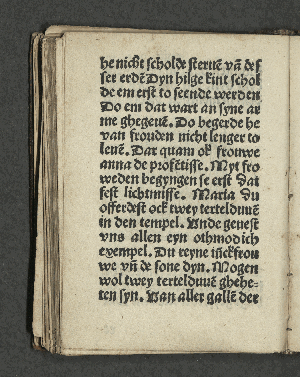 he nicht scholde steruē vn̄ des
ser erdē Dyn hilge kint schol
de em erst to seende werden
Do em dat wart an syne ar
me ghegeuē. Do begerde he
van frouden nicht lenger to
leuē. Dar quam ok frouwe
anna de profētisse. Myt fro
weden begyngen se erst Dat
fest lichtmisse. Maria Du
offerdest ock twey tertelduuē
in den tempel. Vnde geuest
vns allen eyn othmodich
exempel. Du reyne iūckfrou
we vn̄ de sone dyn. Mogen
wol twey tertelduuē ghehe-
ten syn. Van aller gallē der